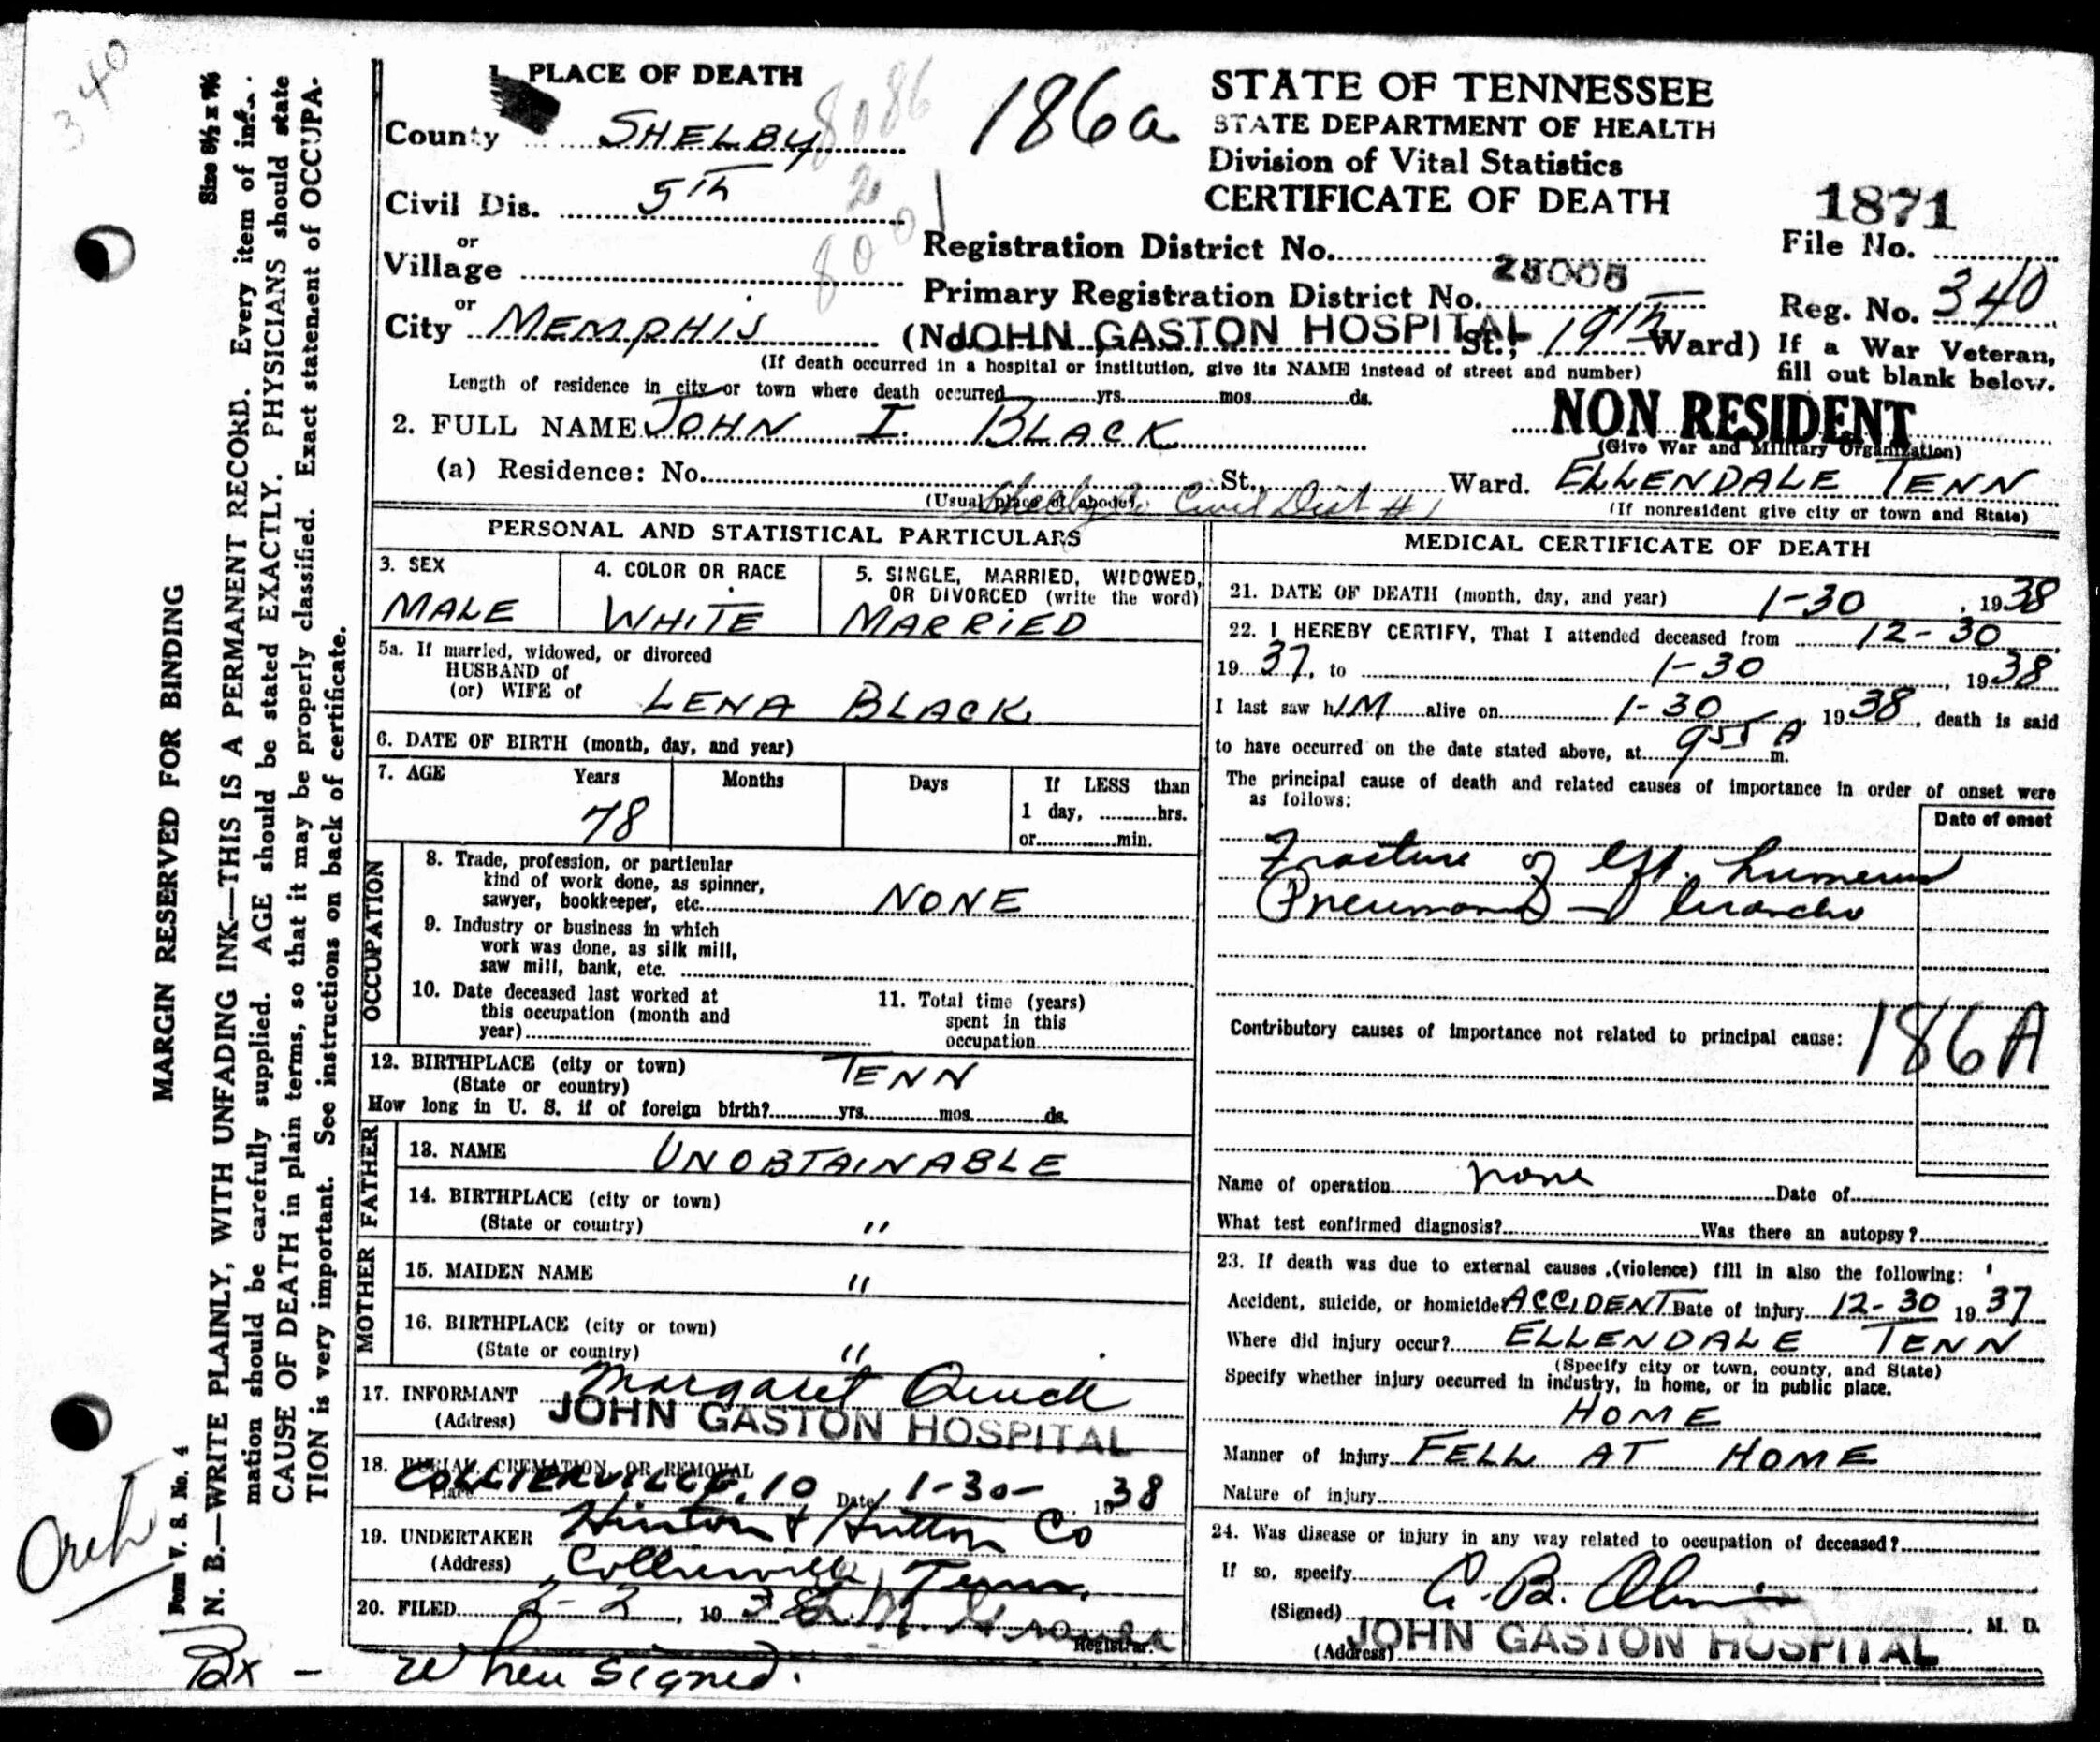 340
MARGIN RESERVED FOR BINDING
Size 8½ x 7½
N. B.—WRITE PLAINLY, WITH UNFADING INK—THIS IS A PERMANENT RECORD. Every item of infor-
mation should be carefully supplied. AGE should be stated EXACTLY. PHYSICIANS should state
CAUSE OF DEATH in plain terms, so that it may be properly classified. Exact statement of OCCUPA-
TION is very important. See instructions on back of certificate.
Form V. S. No. 4
1. PLACE OF DEATH
County SHELBY
8086
Civil Dis. 5th
or
Village
or
City MEMPHIS
186a
STATE OF TENNESSEE
STATE DEPARTMENT OF HEALTH
Division of Vital Statistics
CERTIFICATE OF DEATH
1871
File No.
Registration District No.
Primary Registration District No. 28005
Reg. No. 340
(No. JOHN GASTON HOSPITAL St., 19th Ward)
(If death occurred in a hospital or institution, give its NAME instead of street and number)
If a War Veteran,
fill out blank below.
Length of residence in city or town where death occurred yrs. mos. ds.
NON RESIDENT
(Give War and Military Organization)
2. FULL NAME JOHN I. BLACK
(a) Residence: No. St., Ward. ELLENDALE TENN
(Usual place of abode) Shelby Co Civil Dist # 1
(If nonresident give city or town and State)
PERSONAL AND STATISTICAL PARTICULARS
3. SEX
MALE
4. COLOR OR RACE
WHITE
5. SINGLE, MARRIED, WIDOWED,
OR DIVORCED (write the word)
MARRIED
5a. If married, widowed, or divorced
HUSBAND of
(or) WIFE of LENA BLACK
6. DATE OF BIRTH (month, day, and year)
7. AGE Years Months Days If LESS than
1 day, hrs.
or min.
78
OCCUPATION
8. Trade, profession, or particular
kind of work done, as spinner,
sawyer, bookkeeper, etc. NONE
9. Industry or business in which
work was done, as silk mill,
saw mill, bank, etc.
10. Date deceased last worked at
this occupation (month and
year)
11. Total time (years)
spent in this
occupation
12. BIRTHPLACE (city or town) TENN
(State or country)
How long in U. S. if of foreign birth? yrs. mos. ds.
FATHER
13. NAME UNOBTAINABLE
14. BIRTHPLACE (city or town)
(State or country) "
MOTHER
15. MAIDEN NAME "
16. BIRTHPLACE (city or town)
(State or country) "
17. INFORMANT Margaret
(Address) JOHN GASTON HOSPITAL
18. BURIAL, CREMATION, OR REMOVAL
Place COLLIERVILLE, 10 Date 1-30- 1938
19. UNDERTAKER Hinton & Hutton Co
(Address) Collierville, Tenn.
20. FILED 2-2, 1938 L. M. Graves
Registrar.
MEDICAL CERTIFICATE OF DEATH
21. DATE OF DEATH (month, day, and year) 1-30, 1938
22. I HEREBY CERTIFY, That I attended deceased from 12-30
1937, to 1-30, 1938
I last saw hIM alive on 1-30, 1938, death is said
to have occurred on the date stated above, at 9 55 A m.
The principal cause of death and related causes of importance in order of onset were
as follows:
Date of onset
Fracture of left. humerus
Pneumonia — broncho
Contributory causes of importance not related to principal cause:
186A
Name of operation none Date of
What test confirmed diagnosis? Was there an autopsy?
23. If death was due to external causes (violence) fill in also the following:
Accident, suicide, or homicide? ACCIDENT Date of injury 12-30 1937
Where did injury occur? ELLENDALE TENN
(Specify city or town, county, and State)
Specify whether injury occurred in industry, in home, or in public place.
HOME
Manner of injury FELL AT HOME
Nature of injury
24. Was disease or injury in any way related to occupation of deceased?
If so, specify
(Signed) C. B. M. D.
(Address) JOHN GASTON HOSPITAL
when signed.